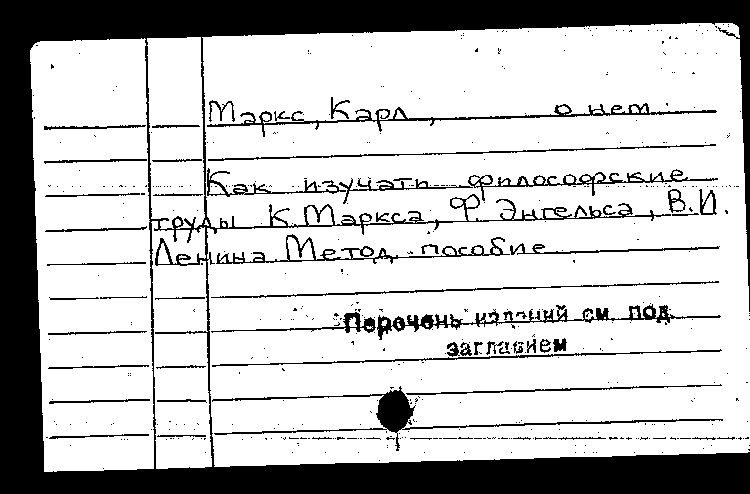 Маркс, Карл, о нем.
Как изучать философские
труды К. Маркса, Ф. Энгельса, В.И.
Ленина. Метод. пособие
Перечень изданий см. под
заглавием